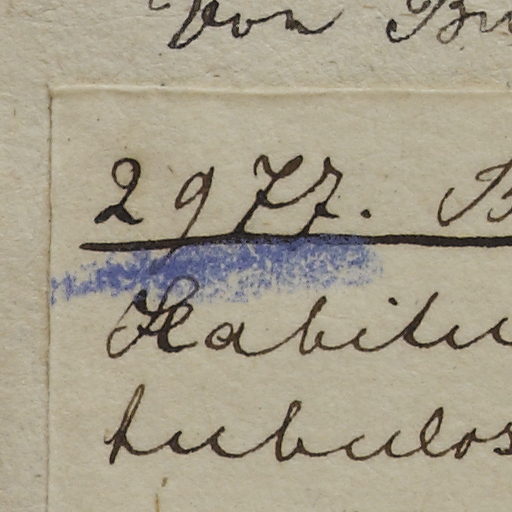 Von
2977. B
Habitu
tubulos